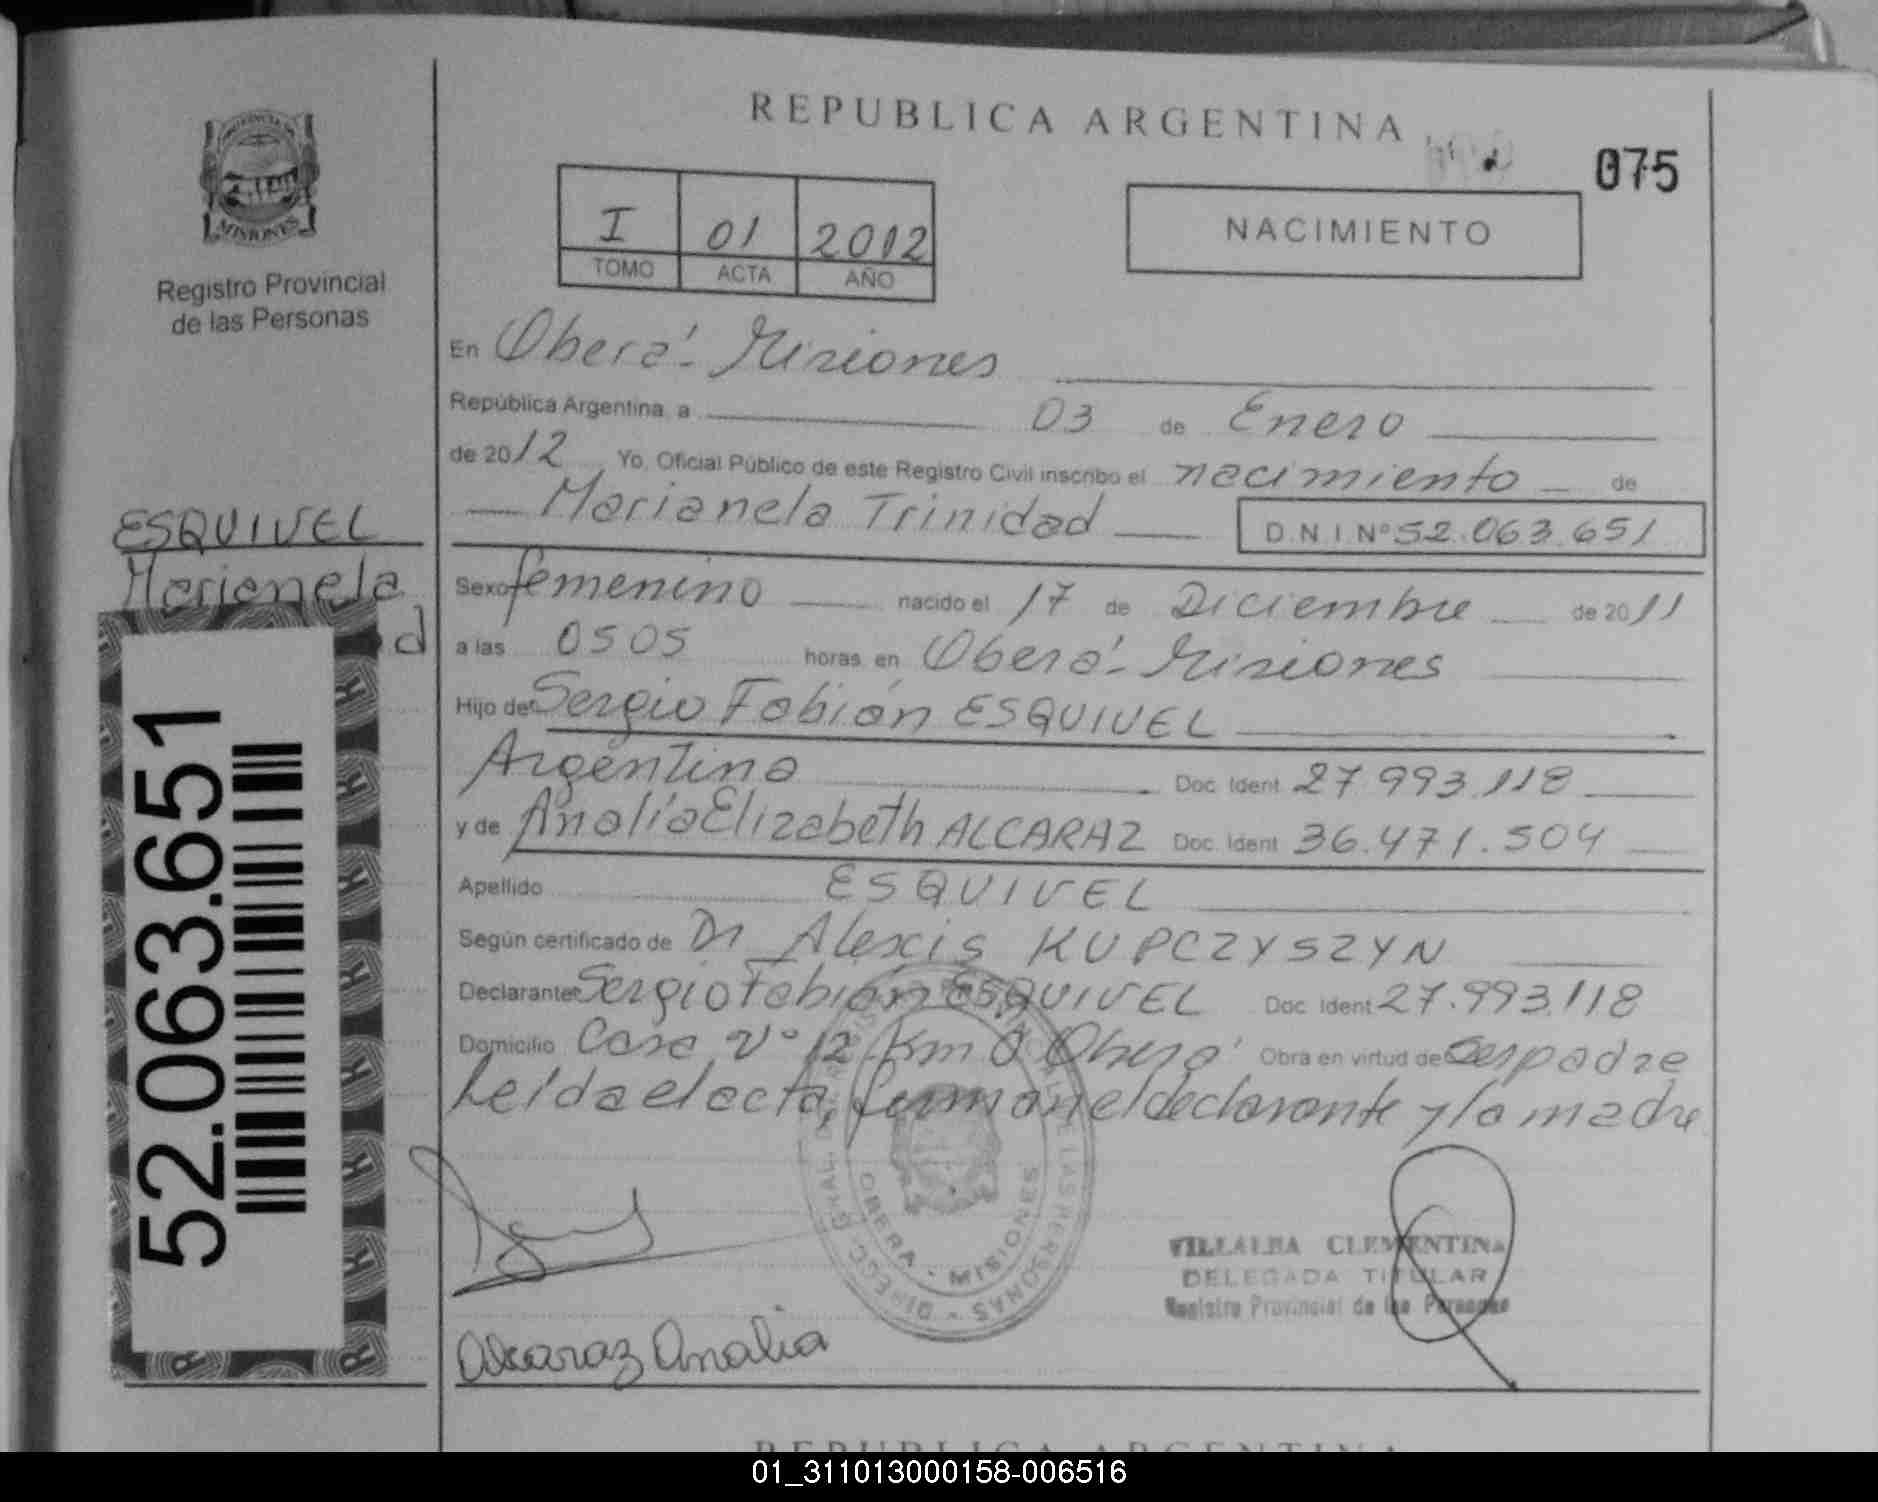 REPUBLICA ARGENTINA
075
PROVINCIA DE
MISIONES
Registro Provincial
de las Personas
I 01 2012
TOMO ACTA AÑO
NACIMIENTO
En Oberá - Misiones
República Argentina, a 03 de Enero
de 2012 Yo, Oficial Público de este Registro Civil inscribo el nacimiento de
Marianela Trinidad D.N.I. Nº 52.063.651
ESQUIVEL
Marianela
d
Sexo femenino nacido el 17 de Diciembre de 2011
a las 0505 horas, en Oberá - Misiones
Hijo de Sergio Fabián ESQUIVEL
Argentino Doc. Ident. 27.993.118
y de Analía Elizabeth ALCARAZ Doc. Ident. 36.471.504
Apellido ESQUIVEL
Según certificado de Dr Alexis KUPCZYSZYN
Declarante Sergio Fabián ESQUIVEL Doc. Ident. 27.993.118
Domicilio Casa Nº 12 Km 0 Oberá Obra en virtud de ser padre
Leída el acta, firman el declarante y la madre
52.063.651
OBERA - MISIONES
VILLALBA CLEMENTINA
DELEGADA TITULAR
Registro Provincial de las Personas
Alcaraz Analia
REPUBLICA ARGENTINA
01_311013000158-006516